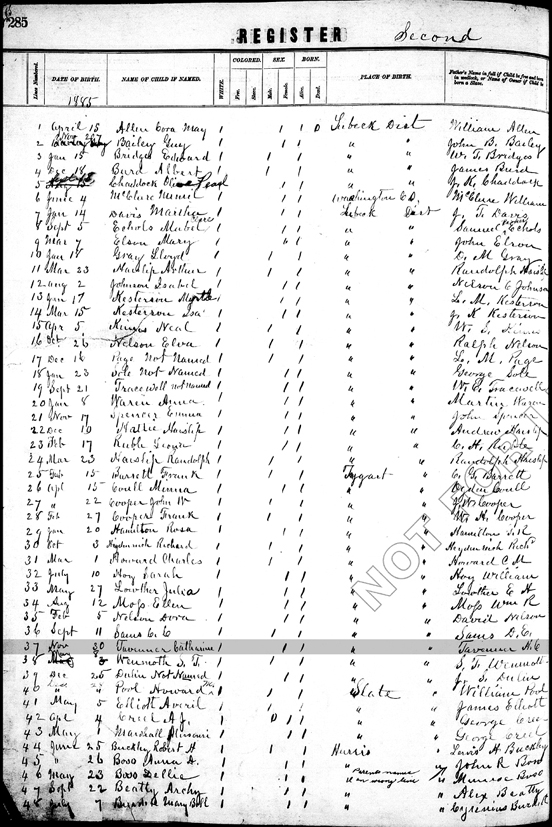 285
REGISTER Second
Lines Numbered. DATE OF BIRTH. NAME OF CHILD IF NAMED. WHITE. COLORED. Free. SEX. Male. Female. BORN. Alive. Dead. PLACE OF BIRTH. Father's Name in full if Child is free and born in wedlock, or Name of Owner if Child is born a Slave.
1885
1 April 15 Allen Cora May 1 1 1 0 Lubeck Dist William Allen
2 Nov 27 Bailey Guy 1 1 1 " " John B. Bailey
3 Jan 15 Bridges Edward 1 1 1 " " W. T. Bridges
4 Dec 18 Burd Albert 1 1 1 " " James Burd
5 Chaddock Olive Pearl 1 1 1 " " J. K. Chaddock
6 June 4 McClure Minnie 1 1 1 Washington C.D. McClure William
7 Jan 14 Davis Martha 1 1 1 Lubeck Dist J. T. Davis
8 Sept 5 Echols Mabel 1 1 1 " " Samuel Echols
9 Mar 7 Elson Mary 1 " 1 " " John Elson
10 Jan 18 Gray Lloyd 1 1 1 " " D. M. Gray
11 Mar 23 Haislip Arthur 1 1 1 " " Randolph Haislip
12 Aug 2 Johnson Isabel 1 1 1 " " Nelson C Johnson
13 Jan 17 Kesterson Myrtle 1 1 1 " " L. M. Kesterson
14 Mar 15 Kesterson Isa 1 1 1 " " J. K Kesterson
15 Apr 5 Neal 1 1 1 " "
16 Oct 26 Nelson Elva 1 1 1 " " Ralph Nelson
17 Dec 16 Page Not Named 1 1 1 " " L. M. Page
18 Jan 23 Sole Not Named 1 1 1 " " George Sole
19 Sept 21 Tracewell not named 1 1 1 " " W. C. Tracewell
20 Jan 8 Anna 1 1 1 " " Martin
21 Nov 17 Spencer Emma 1 1 1 " " John Spencer
22 Dec 10 Haislip 1 1 1 " " Andrew Haislip
23 Feb 17 1 1 1 " " C. H.
24 Mar 23 Haislip Randolph 1 1 1 " " Randolph Haislip
25 Feb 15 Barrett Frank 1 1 1 Tygart " C. G. Barrett
26 Apl 15 Coull Minna 1 1 1 " " Coull
27 " 22 Cooper John W 1 1 1 " " J. W. Cooper
28 Feb 27 Cooper Frank 1 1 1 " " W. H. Cooper
29 Jan 20 Hamilton Rosa 1 1 1 " " Hamilton
30 Oct 3 Heydenrich Richard 1 1 1 " " Heydenrich Richd
31 Mar 1 Howard Charles 1 1 1 " " Howard C M
32 July 10 Hoy Sarah 1 1 1 " " Hoy William
33 May 27 Lowther Julia 1 1 1 " " Lowther E H
34 Aug 12 Moss Ellen 1 1 1 " " Moss Wm R
35 Feb 5 Nelson Dora 1 1 1 " " David Nelson
36 Sept 11 Sams C. C 1 1 1 " " Sams D. C.
37 Nov 30 Tavenner Catharine 1 1 1 " " Tavenner
38 3 Wenmoth S. T. 1 1 1 " " S. T. Wenmoth
39 Dec 25 Dulin Not Named 1 1 1 " " J. S. Dulin
40 Pool Howard 1 1 1 Slate " William Pool
41 May 5 Elliott Averil 1 1 1 " " James Elliott
42 Apl 4 Creel A. J. 1 0 1 " " George Creel
43 May 1 Marshall Missouri 1 1 1 " " George Creel
44 June 25 Buckley Robert H 1 1 1 Harris " Lewis H. Buckley
45 " 26 Boso Anna D. 1 1 1 " " John R Boso
46 May 23 Boso Dellie 1 1 1 " Parents name on wrong line Monroe Boso
47 Sept 22 Beatty Archy 1 1 1 " " Alex Beatty
48 July 7 Mary Bell 1 1 1 " "
NOT PUBLI